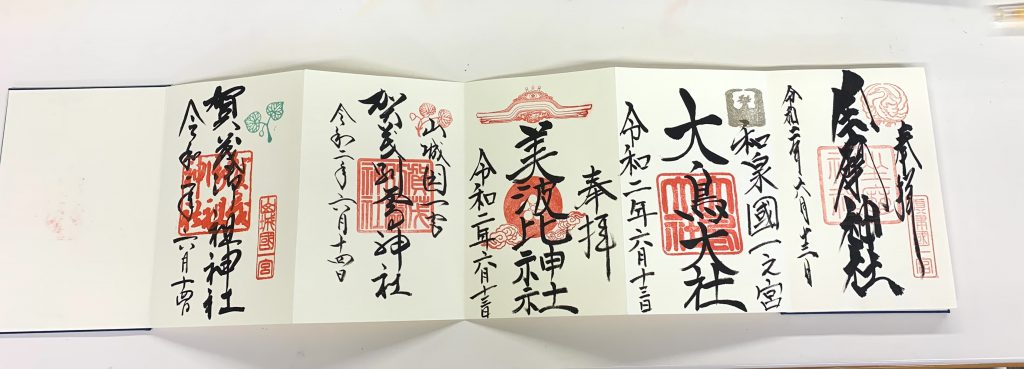 奉拝
神社
令和二年六月十三日
和泉國一之宮
大鳥大社
令和二年六月十三日
奉拝
美波比神社
令和二年六月十三日
山城国一宮
賀茂別雷神社
令和二年六月十四日
山城國一宮
賀茂御祖神社
令和二年六月十四日